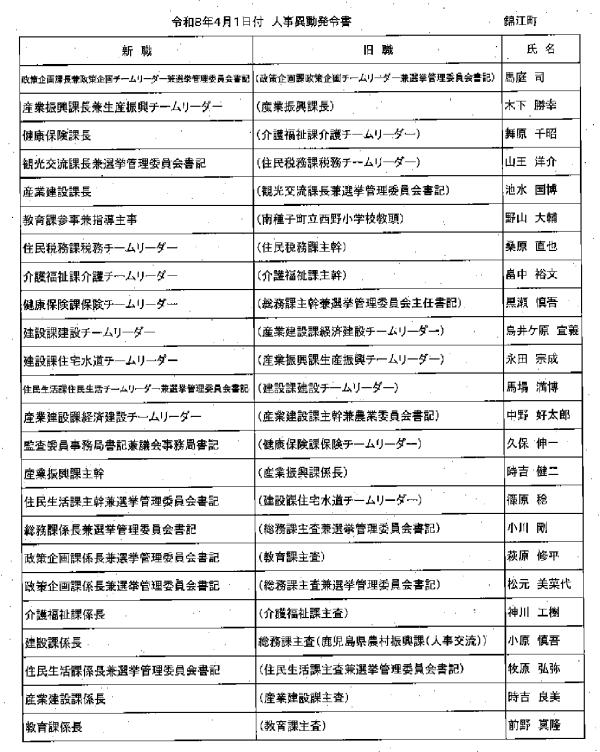 令和8年4月1日付 人事異動発令書 錦江町
新職 旧職 氏名
政策企画課長兼政策企画チームリーダー兼選挙管理委員会書記 (政策企画課政策企画チームリーダー兼選挙管理委員会書記) 馬庭 司
産業振興課長兼生産振興チームリーダー (産業振興課長) 木下 勝幸
健康保険課長 (介護福祉課介護チームリーダー) 舞原 千昭
観光交流課長兼選挙管理委員会書記 (住民税務課税務チームリーダー) 山王 洋介
産業建設課長 (観光交流課長兼選挙管理委員会書記) 池水 国博
教育課参事兼指導主事 (南種子町立西野小学校教頭) 野山 大輔
住民税務課税務チームリーダー (住民税務課主幹) 桑原 直也
介護福祉課介護チームリーダー (介護福祉課主幹) 畠中 裕文
健康保険課保険チームリーダー (総務課主幹兼選挙管理委員会主任書記) 黒瀬 慎吾
建設課建設チームリーダー (産業建設課経済建設チームリーダー) 鳥井ケ原 宣義
建設課住宅水道チームリーダー (産業振興課生産振興チームリーダー) 永田 宗成
住民生活課住民生活チームリーダー兼選挙管理委員会書記 (建設課建設チームリーダー) 馬場 満博
産業建設課経済建設チームリーダー (産業建設課主幹兼農業委員会書記) 中野 好太郎
監査委員事務局書記兼議会事務局書記 (健康保険課保険チームリーダー) 久保 伸一
産業振興課主幹 (産業振興課係長) 時吉 健二
住民生活課主幹兼選挙管理委員会書記 (建設課住宅水道チームリーダー) 篠原 稔
総務課係長兼選挙管理委員会書記 (総務課主査兼選挙管理委員会書記) 小川 剛
政策企画課係長兼選挙管理委員会書記 (教育課主査) 萩原 修平
政策企画課係長兼選挙管理委員会書記 (総務課主査兼選挙管理委員会書記) 松元 美菜代
介護福祉課係長 (介護福祉課主査) 神川 工樹
建設課係長 総務課主査(鹿児島県農村振興課(人事交流)) 小原 慎吾
住民生活課係長兼選挙管理委員会書記 (住民生活課主査兼選挙管理委員会書記) 牧原 弘弥
産業建設課係長 (産業建設課主査) 時吉 良美
教育課係長 (教育課主査) 前野 真隆